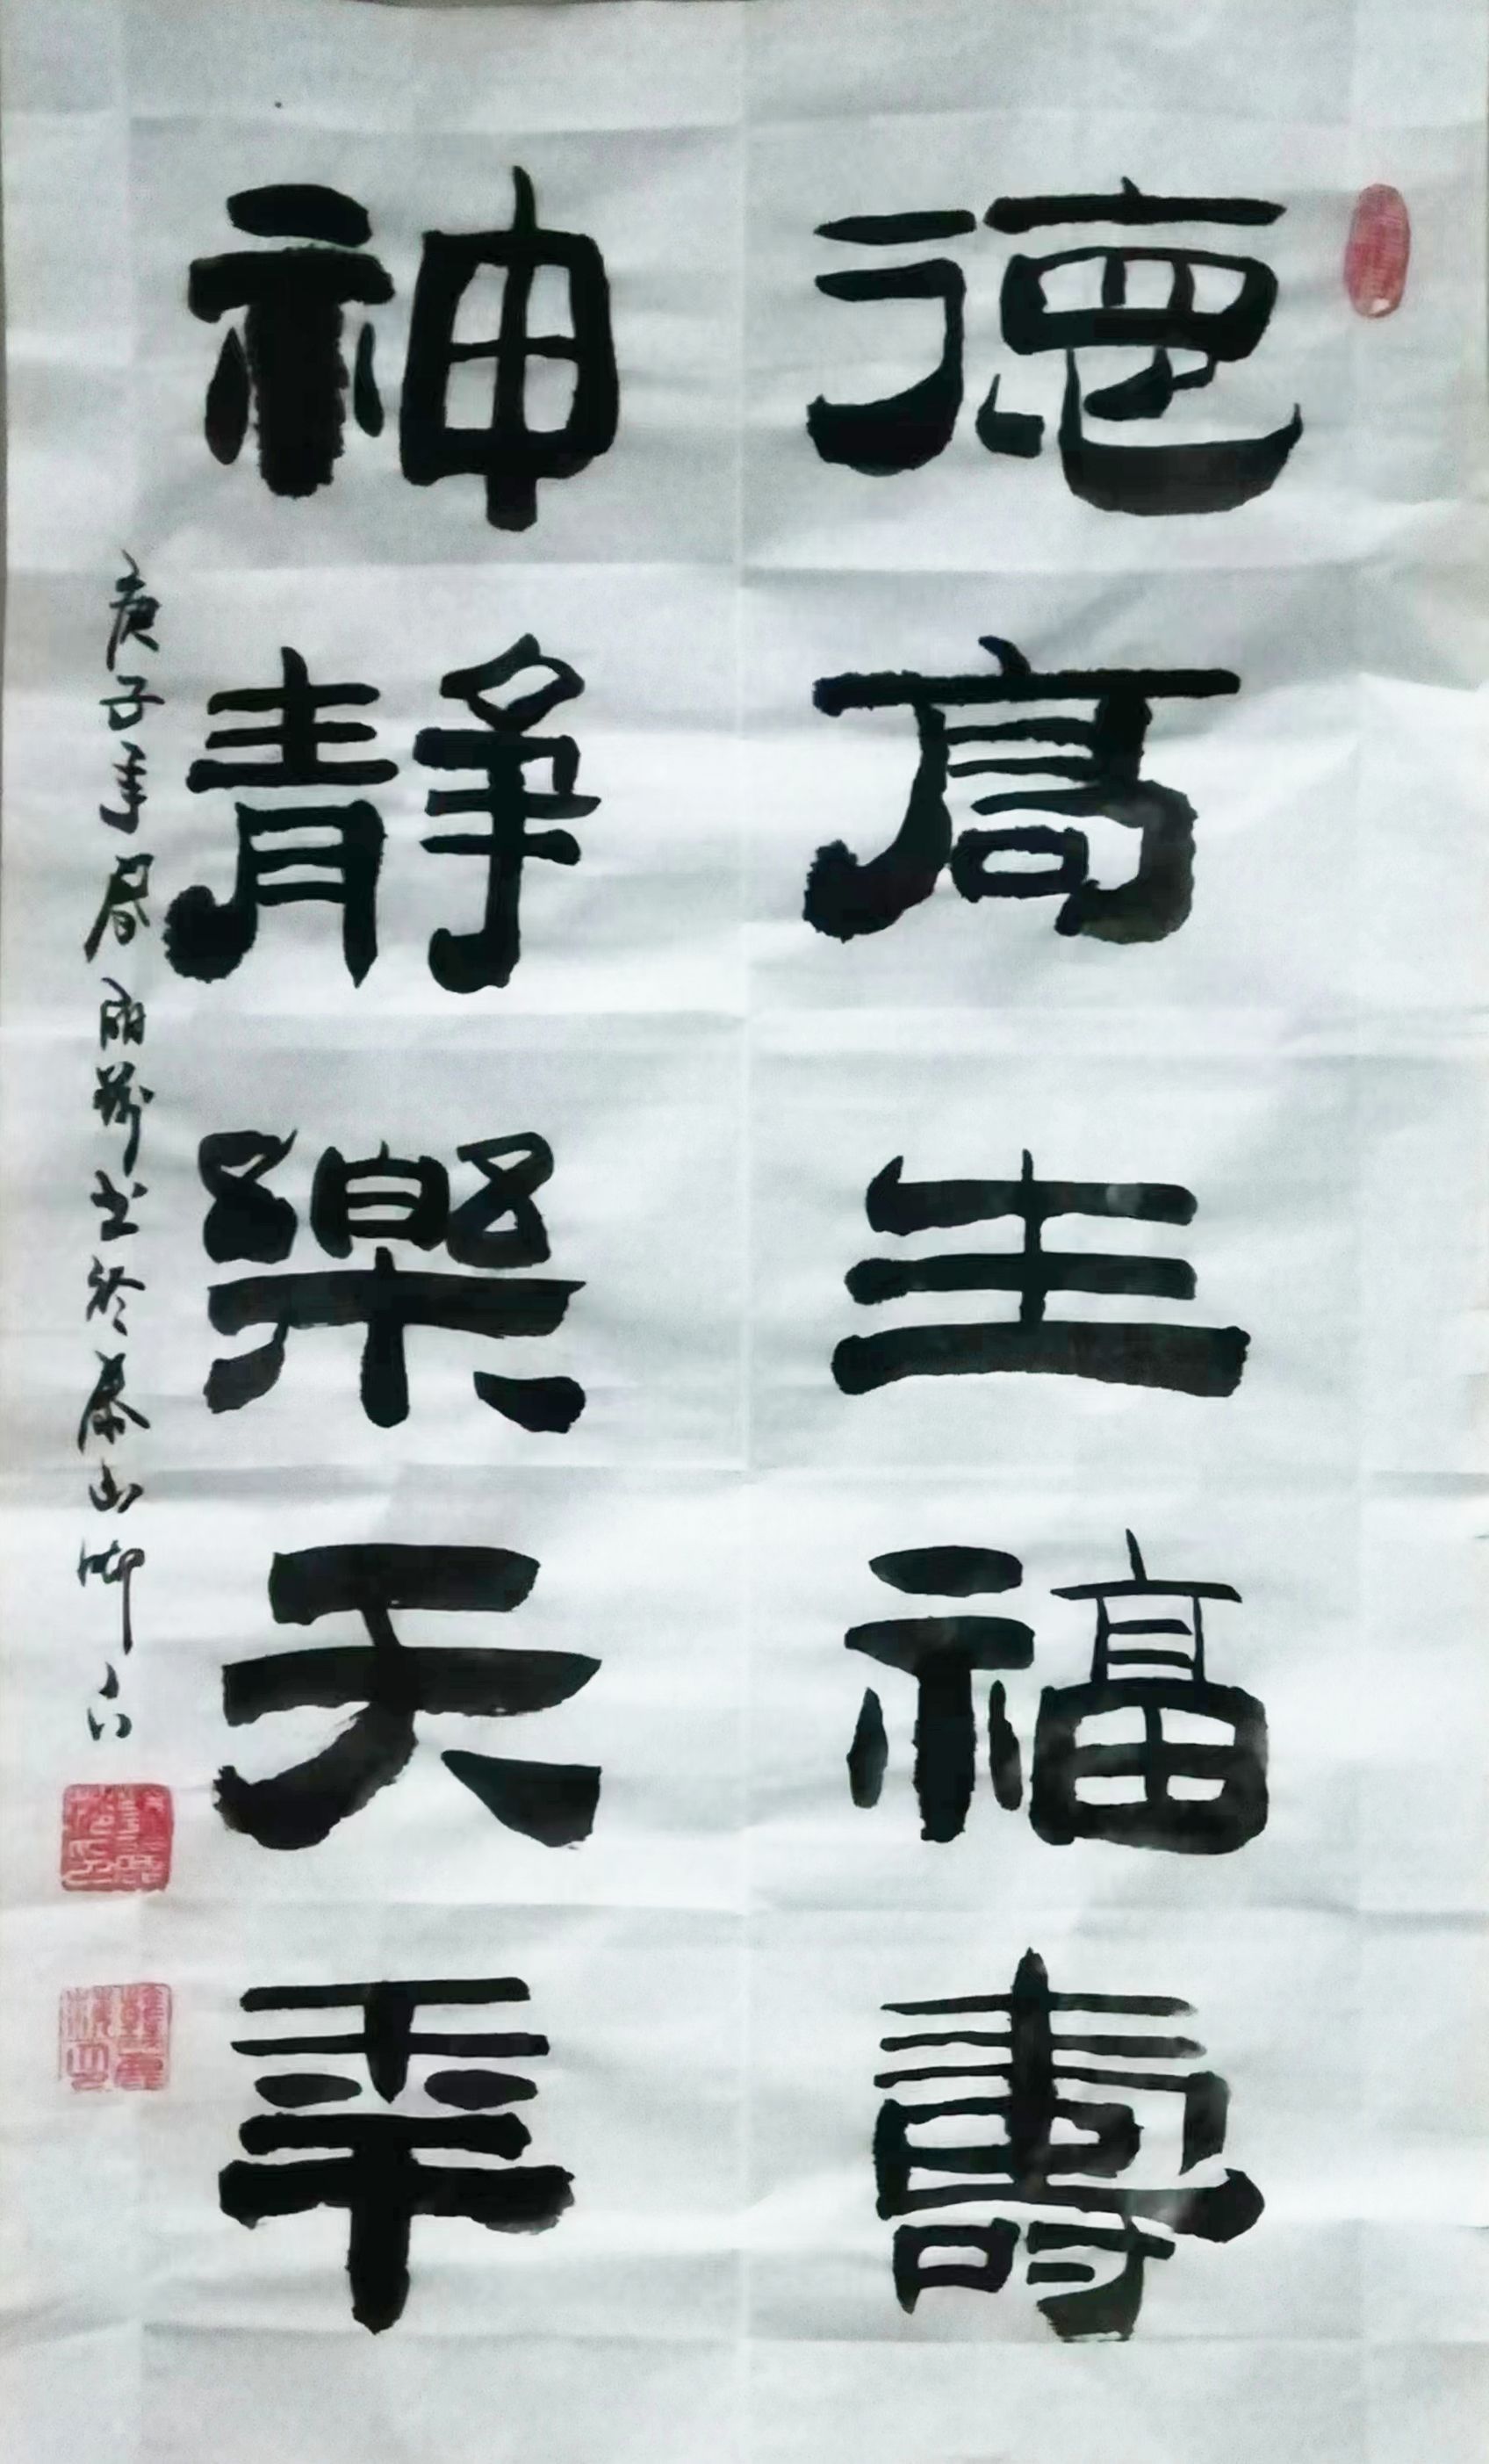 德高生福壽
神靜樂天年
庚子年春 书於泰山脚下